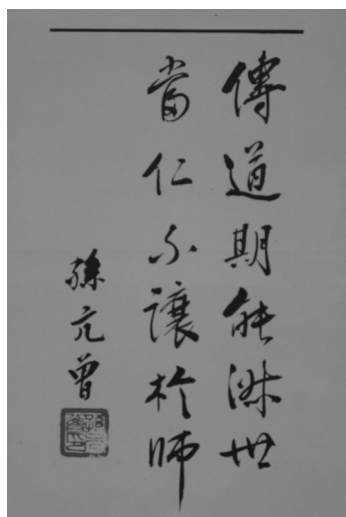 傳道期能淑世
當仁不讓於師
孫亢曾